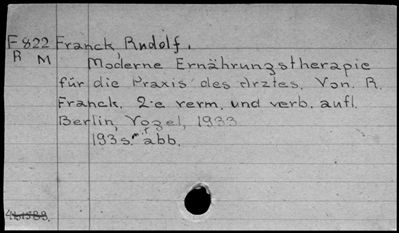 F822 Franck, Rudolf.
R M Moderne Ernährungstherapie
für die Praxis des Arztes. Von R.
Franck. 2-e verm. und verb. aufl.
Berlin, Vogel, 1933
193s. abb.